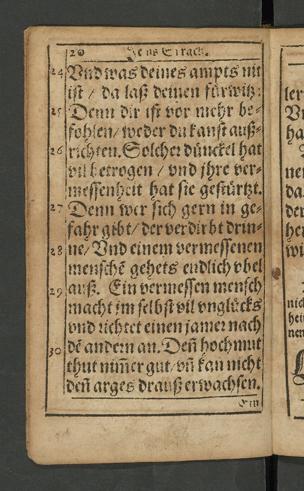 20 Jesus Sirach.
24 Vnd was deines ampts nit
ist / da laß deinen fürwitz:
25 Denn dir ist vor mehr be-
fohlen / weder du kanst auß-
26 richten. Solcher dünckel hat
vil betrogen / vnd jhre ver-
messenheit hat sie gestürtzt.
27 Denn wer sich gern in ge-
fahr gibt / der verdirbt drin-
28 ne / Vnd einem vermessenen
menschẽ gehets endlich vbel
29 auß. Ein vermessen mensch
macht jm selbst vil vnglücks
vnd richtet einen jamer nach
30 dẽ andern an. Deñ hochmut
thut nim̃er gut / vñ kan nicht
deñ arges drauß erwachsen.
Ein
ler
Vn
ha
ne
da
der
her
wi
nich
hei
nen